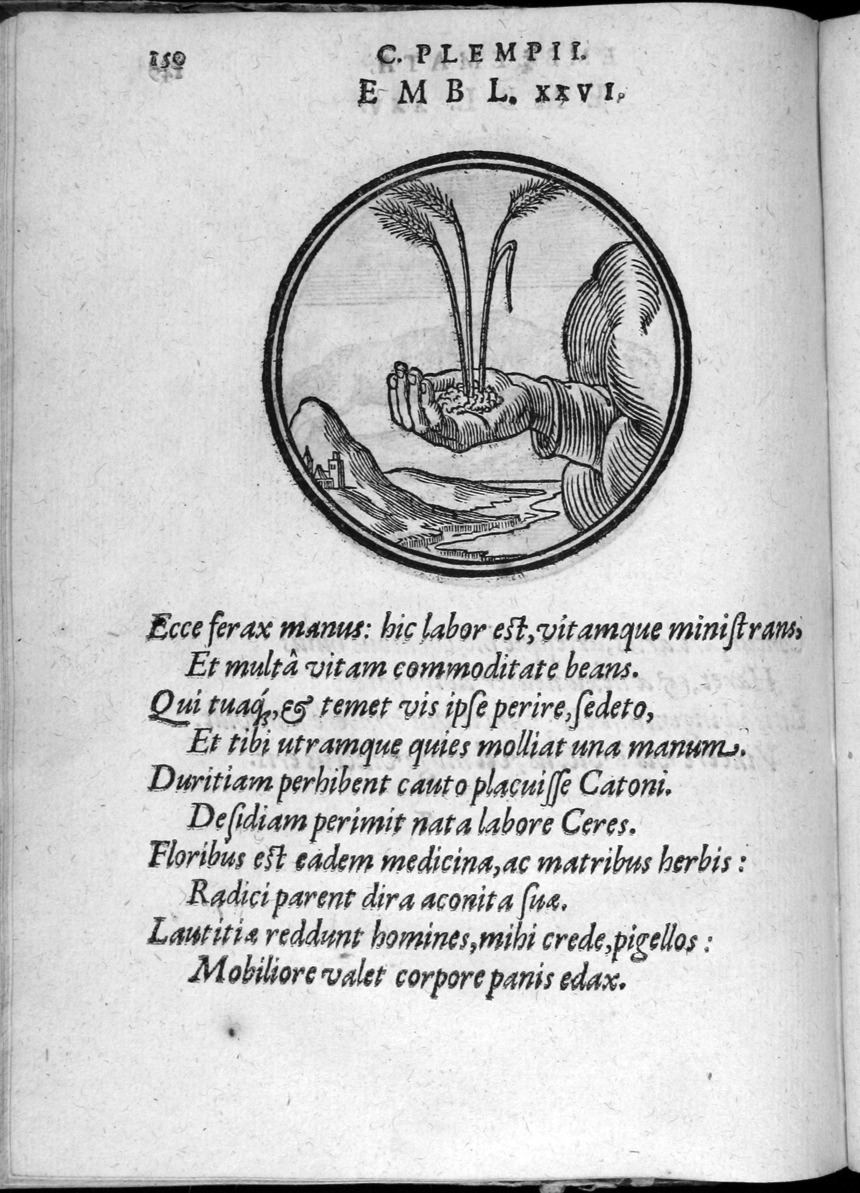 150
C. PLEMPII.
EMBL. XXVI.
Ecce ferax manus: hic labor est, vitamque miniſtrans,
Et multâ vitam commoditate beans.
Qui tuaq́;, & temet vis ipſe perire, ſedeto,
Et tibi utramque quies molliat una manum.
Duritiam perhibent cauto placuiſſe Catoni.
Deſidiam perimit nata labore Ceres.
Floribus est eadem medicina, ac matribus herbis:
Radici parent dira aconita ſuæ.
Lautitiæ reddunt homines, mihi crede, pigellos:
Mobiliore valet corpore panis edax.